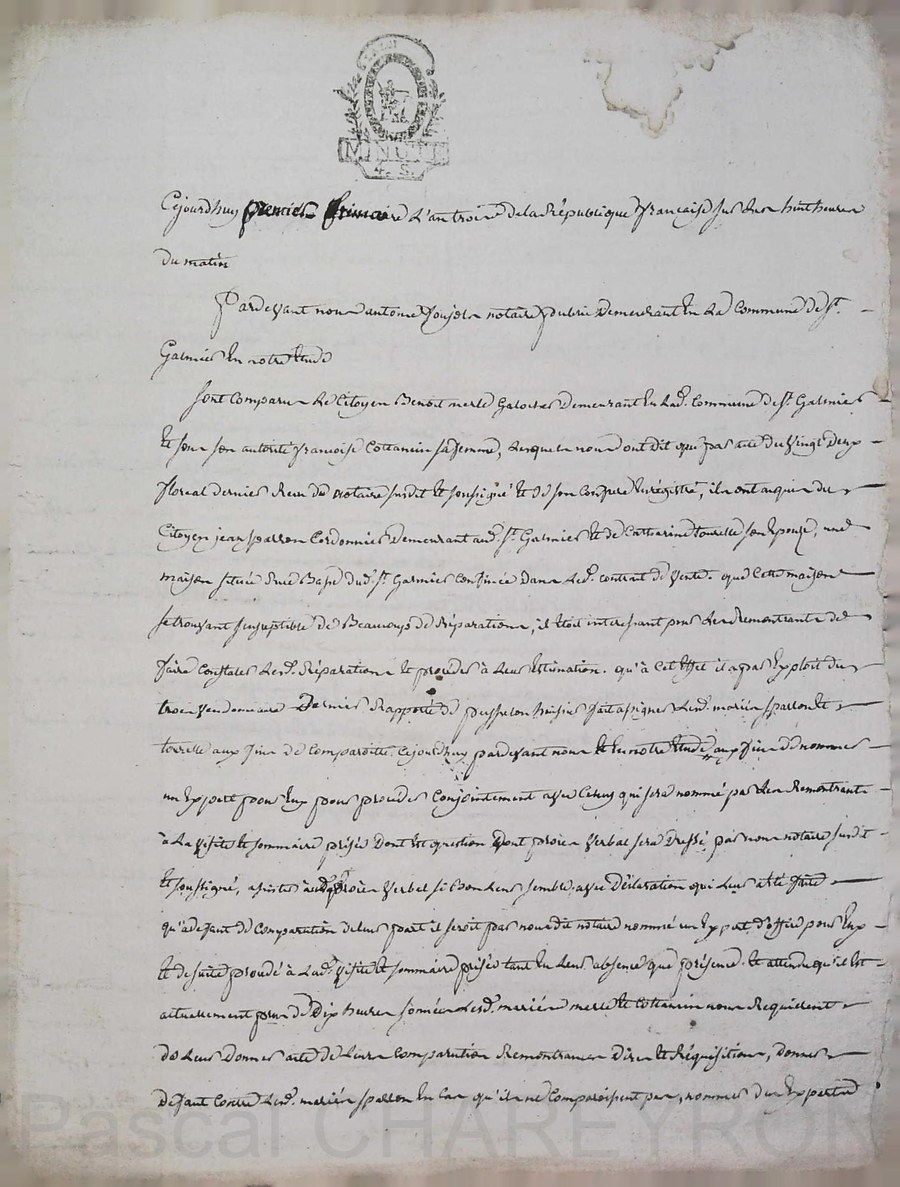 LA LOI
MINUTE
4. S.
Cejourdhuy premier frimaire L'an trois de la République française sur les huit heures
du matin
Pardevant nous antoine notaire public demeurant En La Commune de St.
Galmier En notre Etude
sont Comparus Le Citoyen Benoit merle Galocher demeurant En Lad. Commune de St. Galmier
Et sous son autorité françoise Cottancin sa femme, Lesquels nous ont dit que par acte du vingt deux
floreal dernier Reçu du notaire susdit Et soussigné Et son Confrere Enregistré, ils ont acquis du
Citoyen jean sparron Cordonnier demeurant aud. St. Galmier Et de Catherine tourelle son Epouze, une
maison située Rue Basse dud. St. Galmier Confinée dans Led. contrat de vente. que Cette maison
se trouvant susceptible de Beaucoup de Réparations, il Etoit interessant pour Les Remontrants de
faire Constater Lesd. Réparations Et proceder à Leur Estimation. qu'à Cet Effet ils ont par Exploit du
trois vendemiaire dernier Rapporté de huissier fait assigner Lesd. mariés sparron Et
tourelle aux fins de Comparoitre Cejourdhuy pardevant nous Et En notre Etude, aux fins de nommer
un Expert pour Eux pour proceder Conjointement avec Celuy qui sera nommé par Les Remontrants
à La visite Et sommaire prisée dont Est question dont procès verbal sera Dressé par nous notaire susdit
Et soussigné, assister audit procès verbal si Bon Leur semble, avec déclaration qui Leur a Eté faite
qu'a defaut de Comparution de Leur part il seroit par nous dit notaire nommé un Expert d'office pour Eux
Et de suite procédé à Lad. visite Et sommaire prisée tant En Leur absence que présence. Et attendu qu'il Est
actuellement plus de Dix heures sonnées Lesd. mariés merle Et Cottancin nous Requierent
de Leur donner acte de Leurs Comparution Remontrances dires Et Réquisitions, donner
défaut Contre Lesd. mariés sparron En Cas qu'ils ne Comparoissent pas, nommer d'un Expert
Pascal CHAREYRON